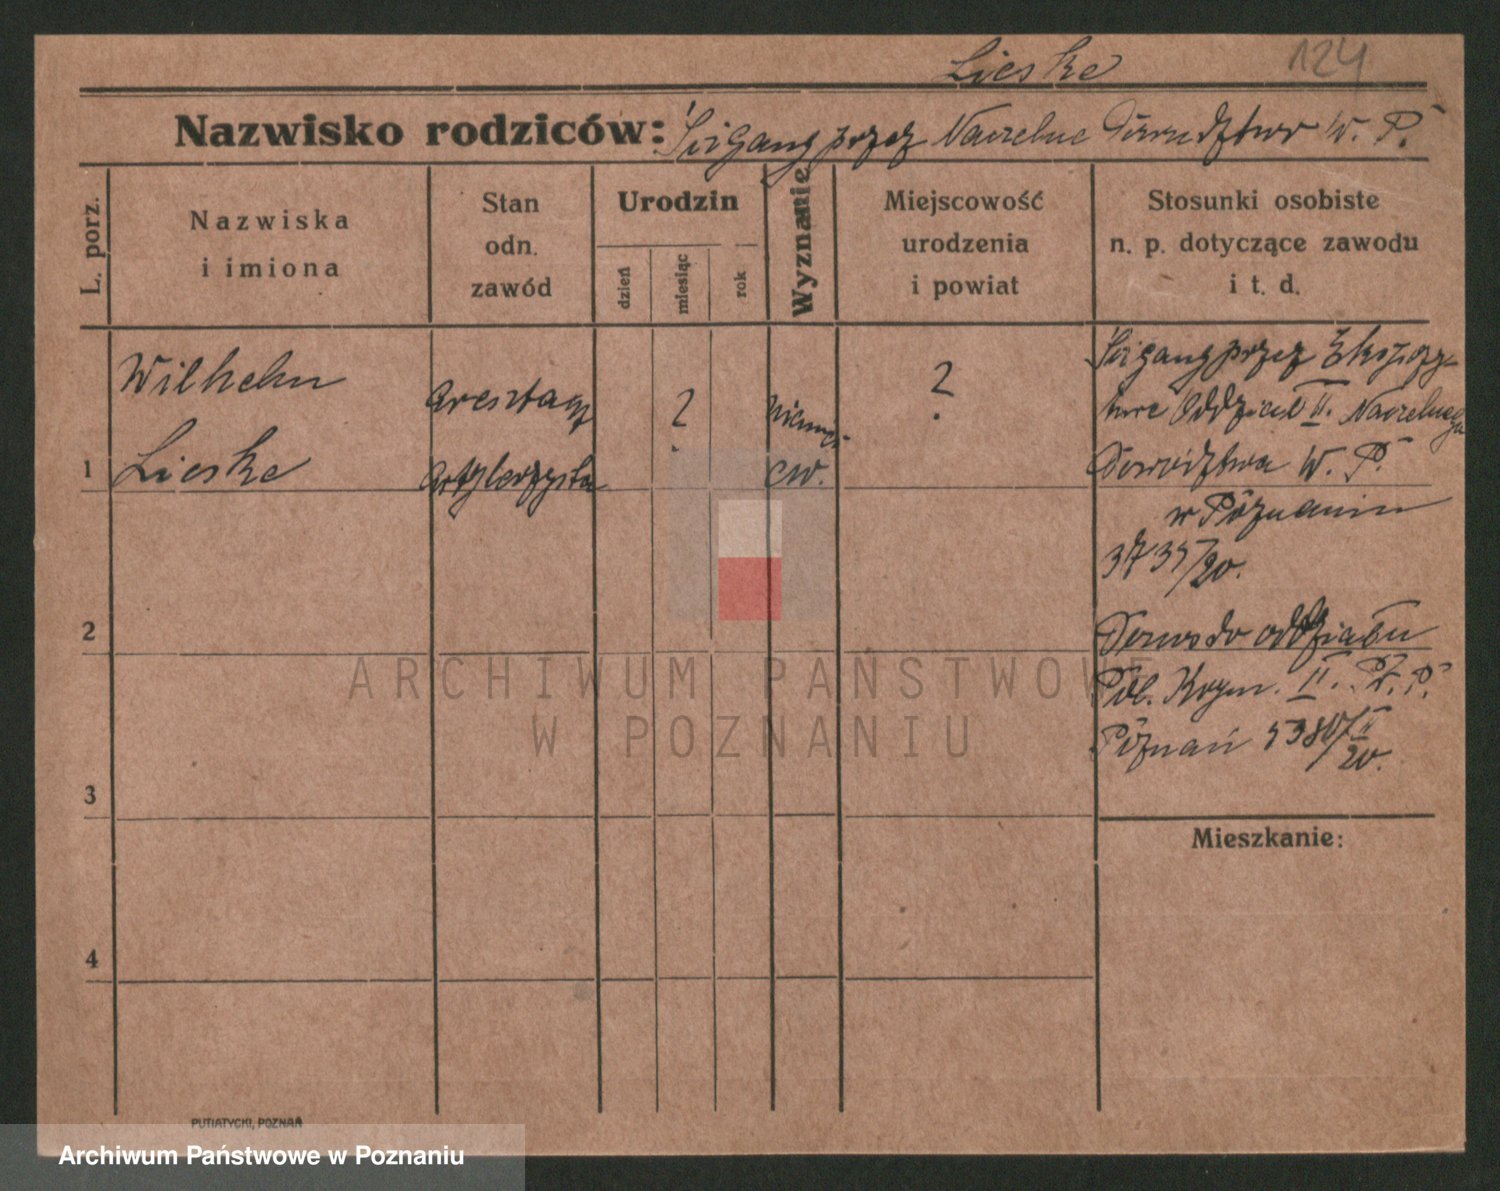 Lieske
124
Nazwisko rodziców: Ścigany przez Naczelne Dowództwo W. P.
L. porz.
Nazwiska
i imiona
Stan
odn.
zawód
Urodzin
dzień
miesiąc
rok
Wyznanie
Miejscowość
urodzenia
i powiat
Stosunki osobiste
n. p. dotyczące zawodu
i t. d.
1
Wilhelm
Lieske
artylerzysta
?
ew.
?
Ścigany przez Ekspozy-
turę Oddział II. Naczelnego
Dowództwa W. P.
w Poznaniu
3735/20.
Pol. II. P.
Poznań 5380/II
20.
2
3
4
Mieszkanie:
PUTIATYCKI, POZNAŃ
ARCHIWUM PAŃSTWOWE
W POZNANIU
Archiwum Państwowe w Poznaniu